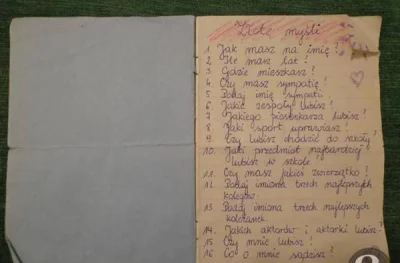 Złote myśli
1. Jak masz na imię?
2. Ile masz lat?
3. Gdzie mieszkasz?
4. Czy masz sympatię?
5. Podaj imię sympatii.
6. Jakie zespoły lubisz?
7. Jakiego piosenkarza lubisz?
8. Jaki sport uprawiasz?
9. Czy lubisz chodzić do szkoły?
10. Jaki przedmiot najbardziej
lubisz w szkole?
11. Czy masz jakieś zwierzątko?
12. Podaj imiona trzech najlepszych
kolegów.
13. Podaj imiona trzech najlepszych
koleżanek.
14. Jakich aktorów i aktorki lubisz?
15. Czy mnie lubisz?
16. Co o mnie sądzisz?